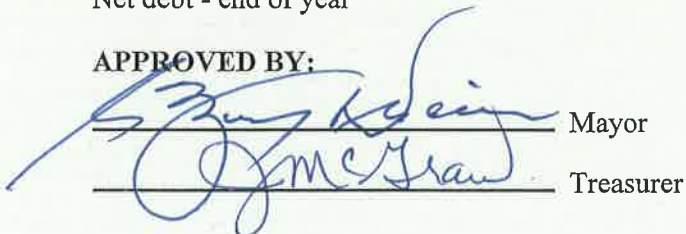 Net debt - end of year
APPROVED BY:
Mayor
J McGraw Treasurer